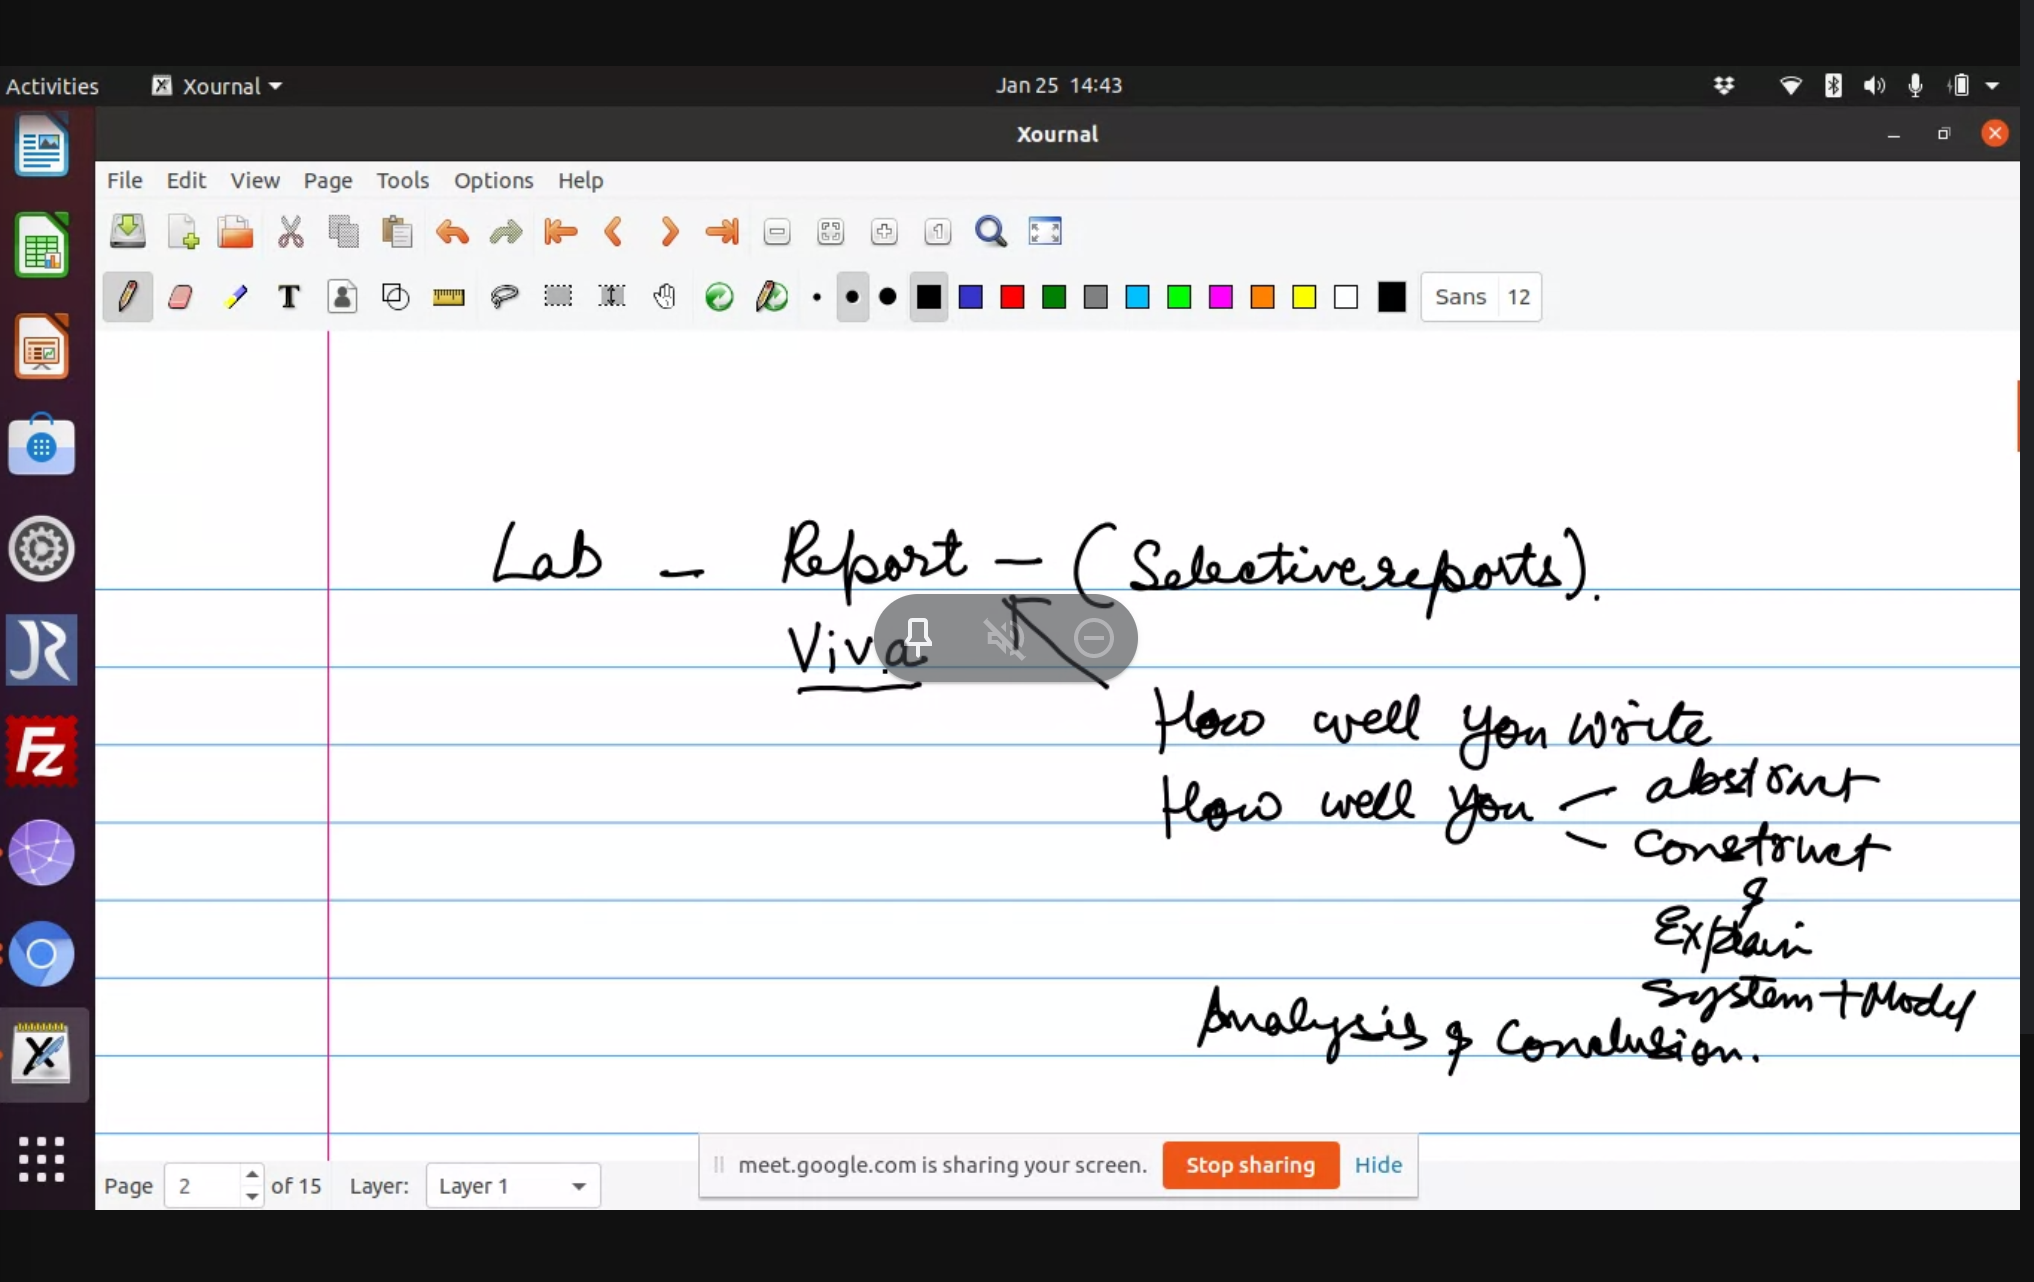 Activities Xournal Jan 25 14:43
Xournal
File Edit View Page Tools Options Help
T 1 Sans 12
Lab - Report - (Selective reports).
Viva
How well you write
How well you - abstract
- construct
&
Explain
System + Model
Analysis & Conclusion.
meet.google.com is sharing your screen. Stop sharing Hide
Page 2 of 15 Layer: Layer 1
JR
Fz